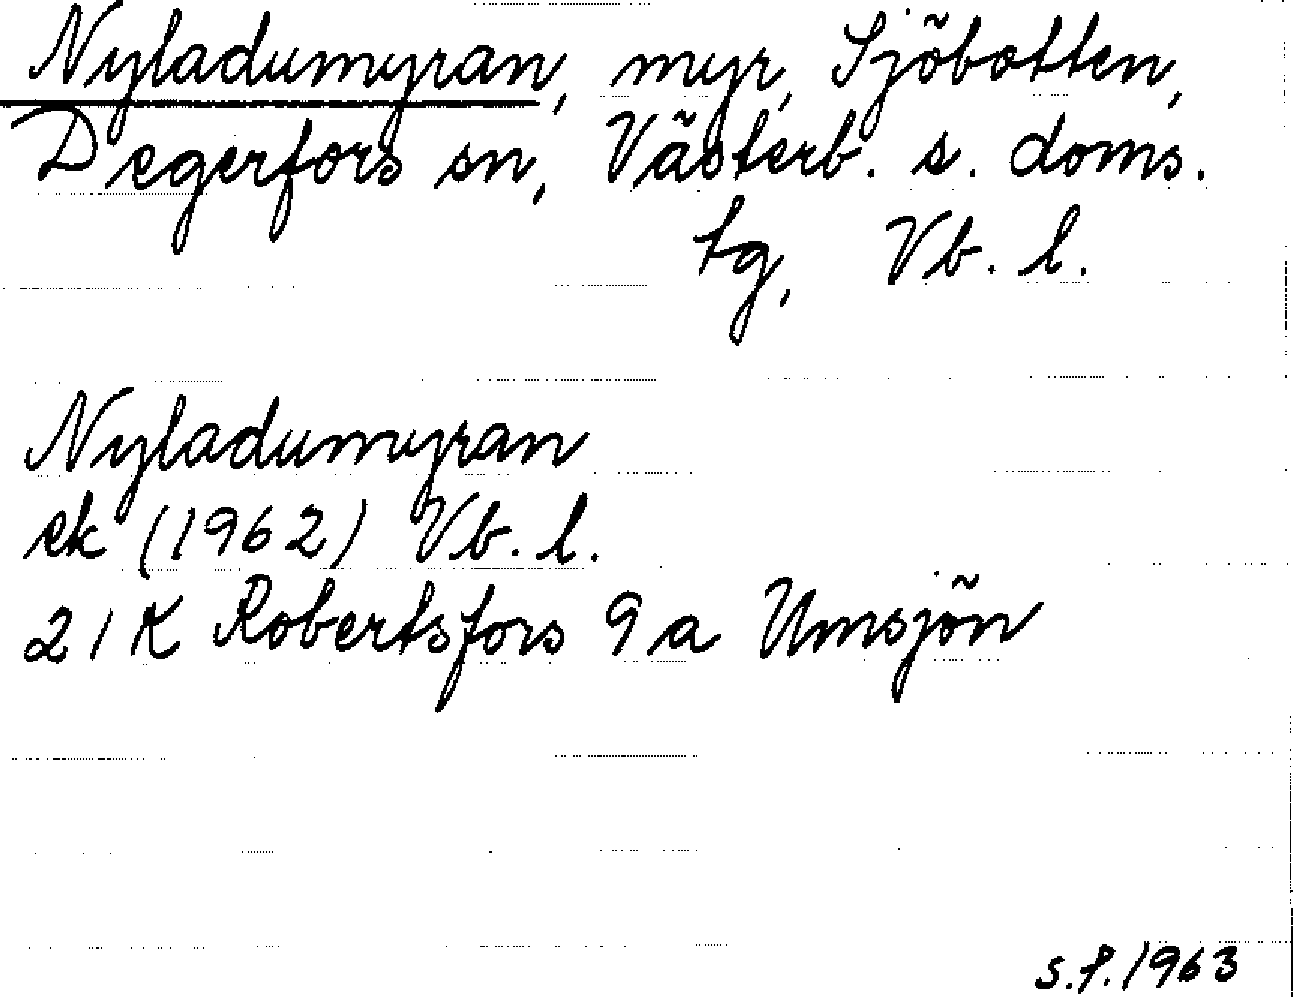 Nyladumyran, myr, Sjöbotten,
Degerfors sn, Västerb. s. doms.
tg, Vb. l.
Nyladumyran
ek (1962) Vb. l.
21 K Robertsfors 9 a Umsjön
s.f. 1963